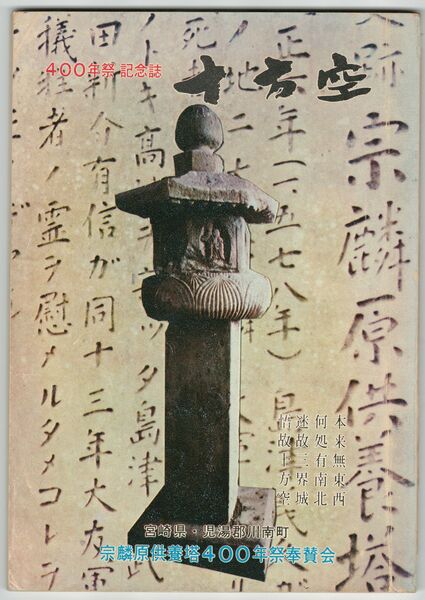 400年祭 記念誌
十方空
跡宗麟原供養塔
正六年(一、五七八年)
ノ地ニ
死
ノトキ高
ツタ島津
田新介有信が同十三年大友軍
犠牲者ノ霊ヲ慰メルタメコレ
本来無東西
何処有南北
迷故三界城
悟故十方空
宮崎県・児湯郡川南町
宗麟原供養塔400年祭奉賛会